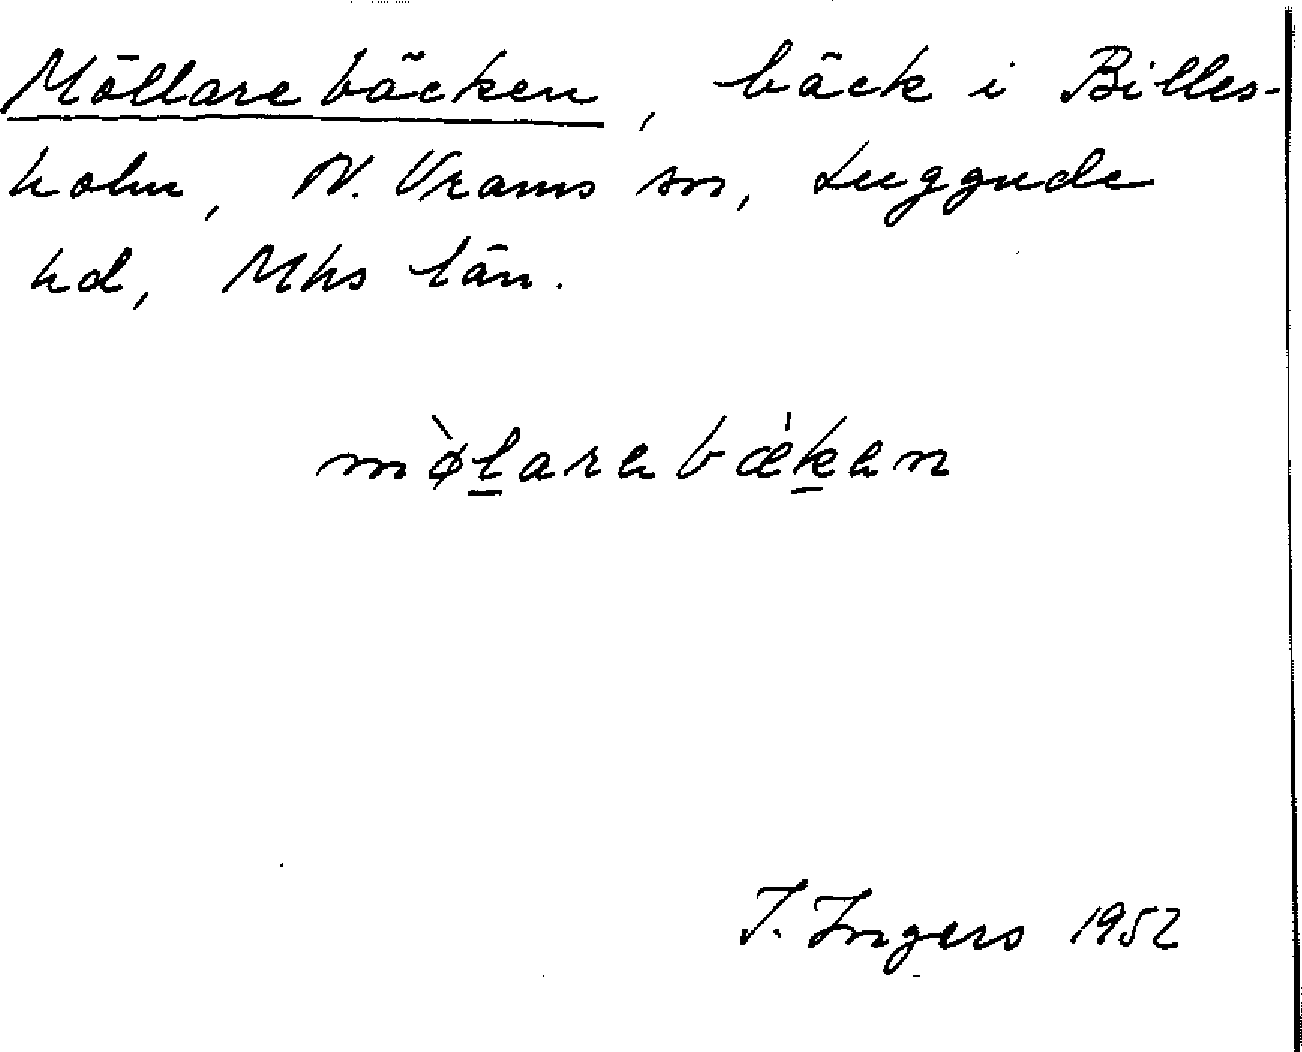 Möllarebäcken, bäck i Billes-
holm, N. Vrams sn, Luggude
hd, Mhs län.
mø̀l̲arəbæ̍k̲ən
I. Ingers 1952